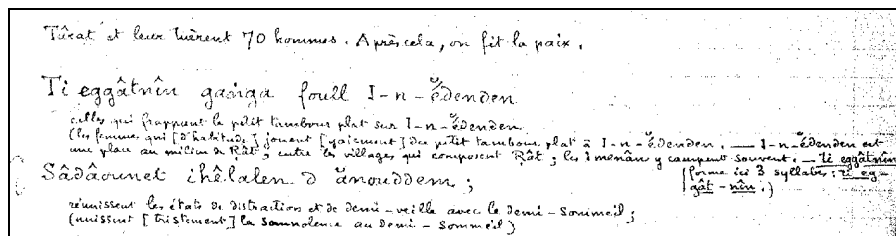 Tûrat et leur tuèrent 70 hommes. Après cela, on fit la paix.
Ti eggâtnîn ganga foull I-n-ĕ́denden
celles qui frappant le petit tambour plat sur I-n-ĕ́denden
(les femmes qui [d'habitude] jouent [gaiement] du petit tambour plat à I-n-ĕ́denden. — I-n-ĕ́denden est
une place au milieu de Rât, entre les villages qui composent Rât ; les imenân y campent souvent. — Ti eggâtnîn
Sâdâounet ihêlalen d ănouddem ;
(forme ici 3 syllabes : ti eg-
gât-nîn.)
réunissent les états de distractions et de demi-veille avec le demi-sommeil ;
(unissent [tristement] la somnolence au demi-sommeil)